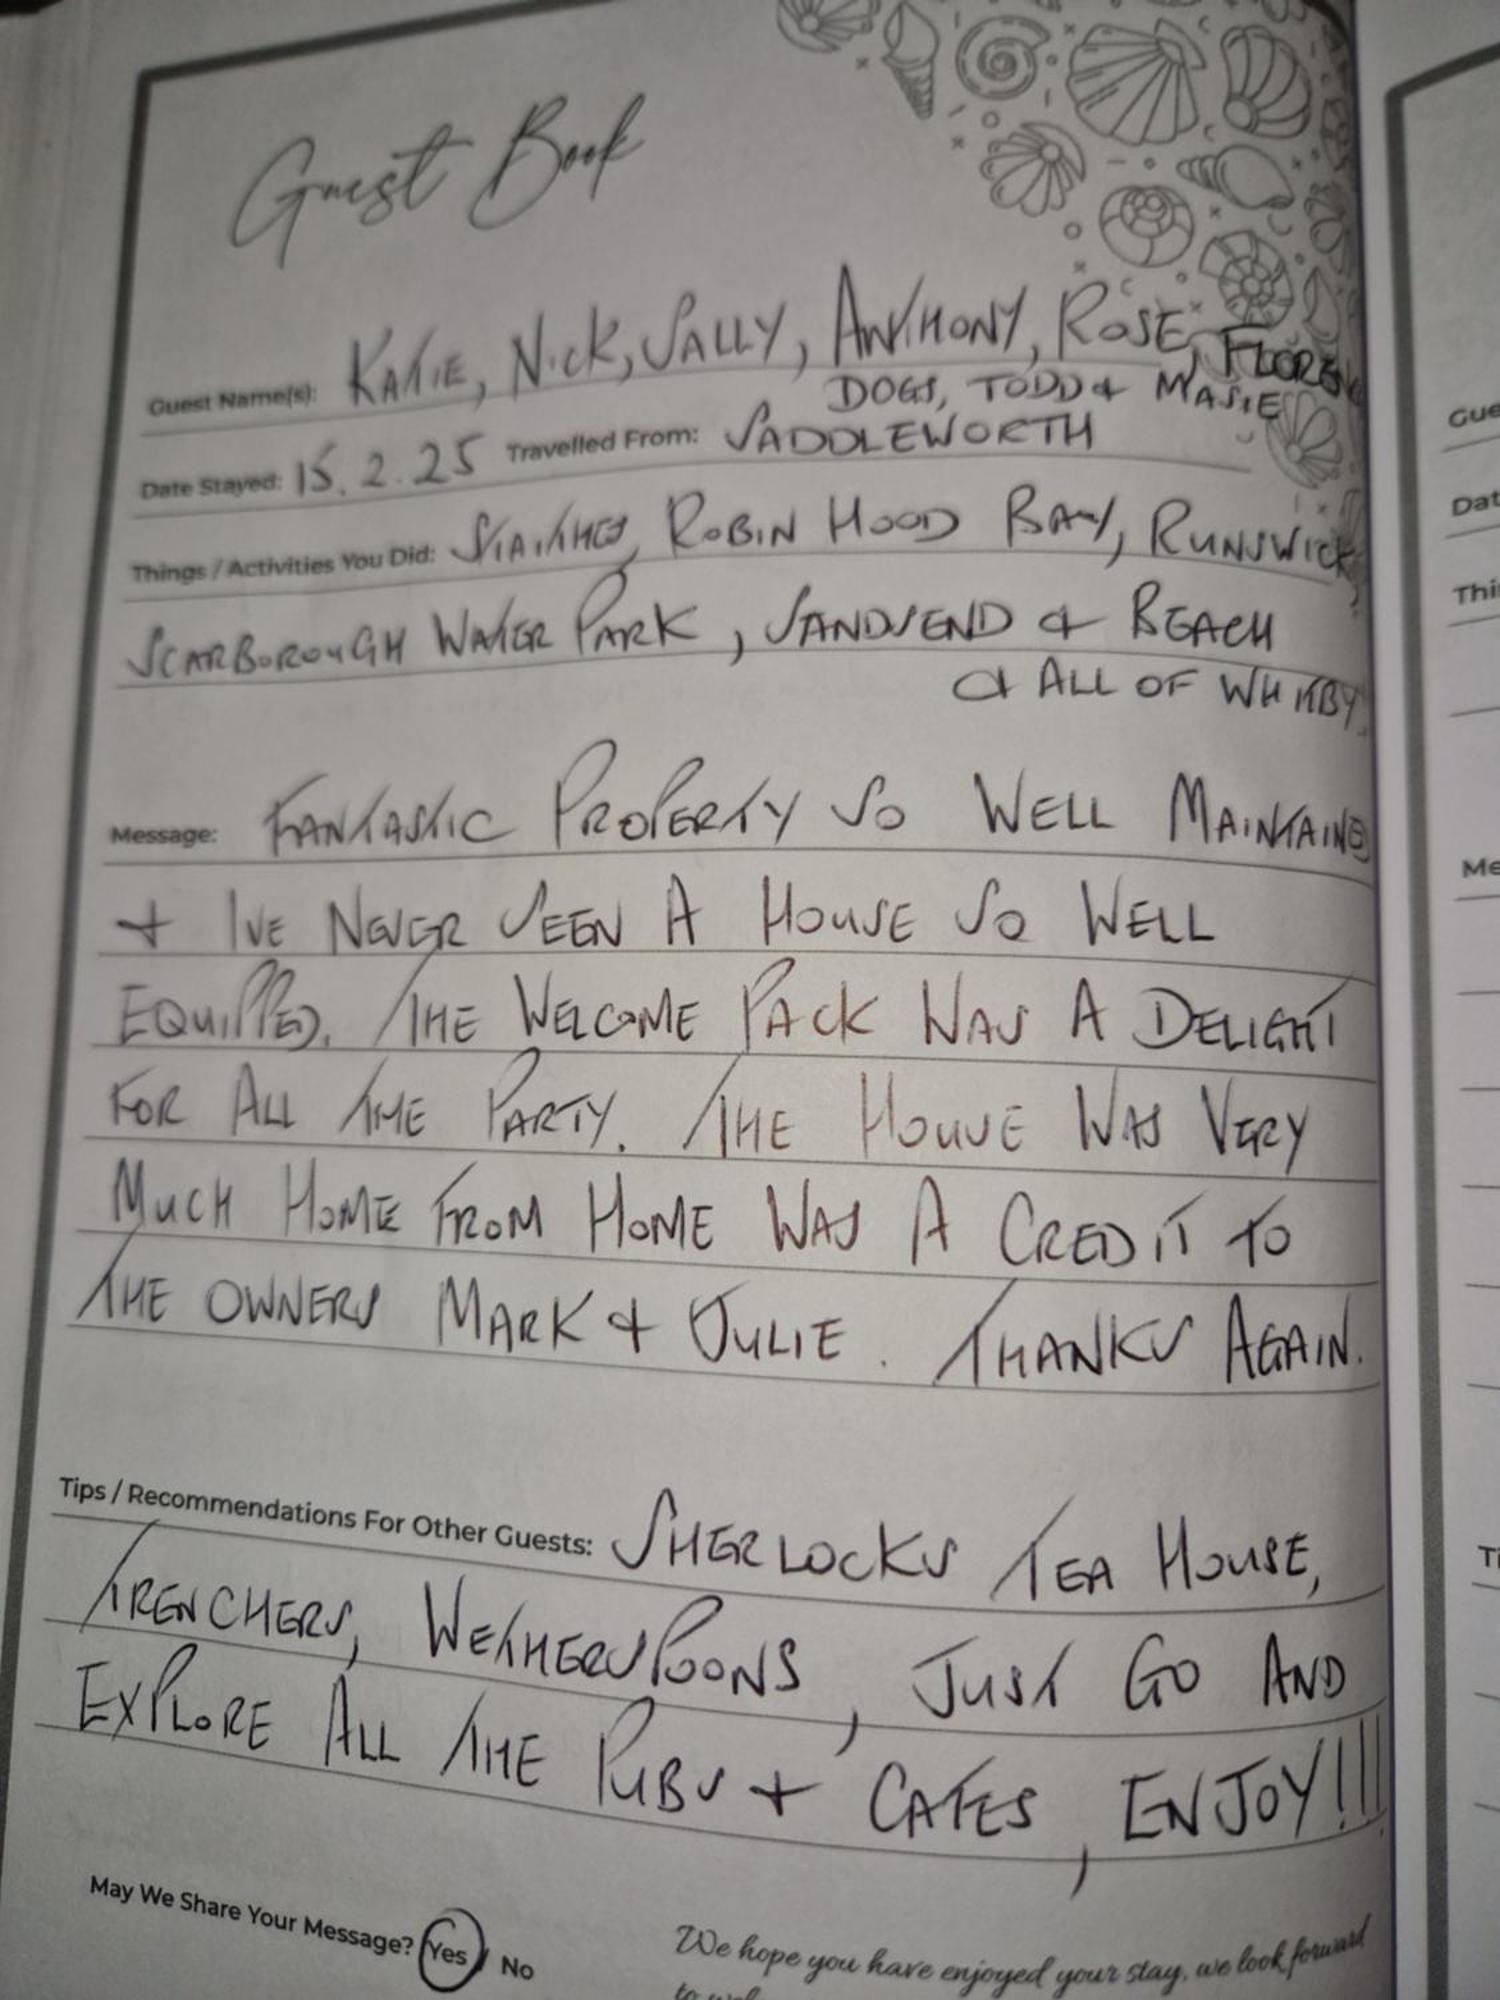 Guest Book
Guest Name(s): KATIE, NICK, SALLY, ANTHONY, ROSE,
DOGS, TODD & MASIE
Date Stayed: 15.2.25 Travelled From: SADDLEWORTH
Things / Activities You Did: STAITHES, ROBIN HOOD BAY, RUNSWICK
SCARBOROUGH WATER PARK, SANDSEND & BEACH
& ALL OF WHITBY.
Message: FANTASTIC PROPERTY SO WELL MAINTAINED
+ IVE NEVER SEEN A HOUSE SO WELL
EQUIPPED. THE WELCOME PACK WAS A DELIGHT
FOR ALL THE PARTY. THE HOUSE WAS VERY
MUCH HOME FROM HOME WAS A CREDIT TO
THE OWNERS MARK + JULIE. THANKS AGAIN.
Tips / Recommendations For Other Guests: SHERLOCKS TEA HOUSE,
TRENCHERS, WETHERSPOONS, JUST GO AND
EXPLORE ALL THE PUBS + CAFES, ENJOY!!!
May We Share Your Message? Yes / No
We hope you have enjoyed your stay, we look forward
Gue
Dat
Thi
Me
Ti